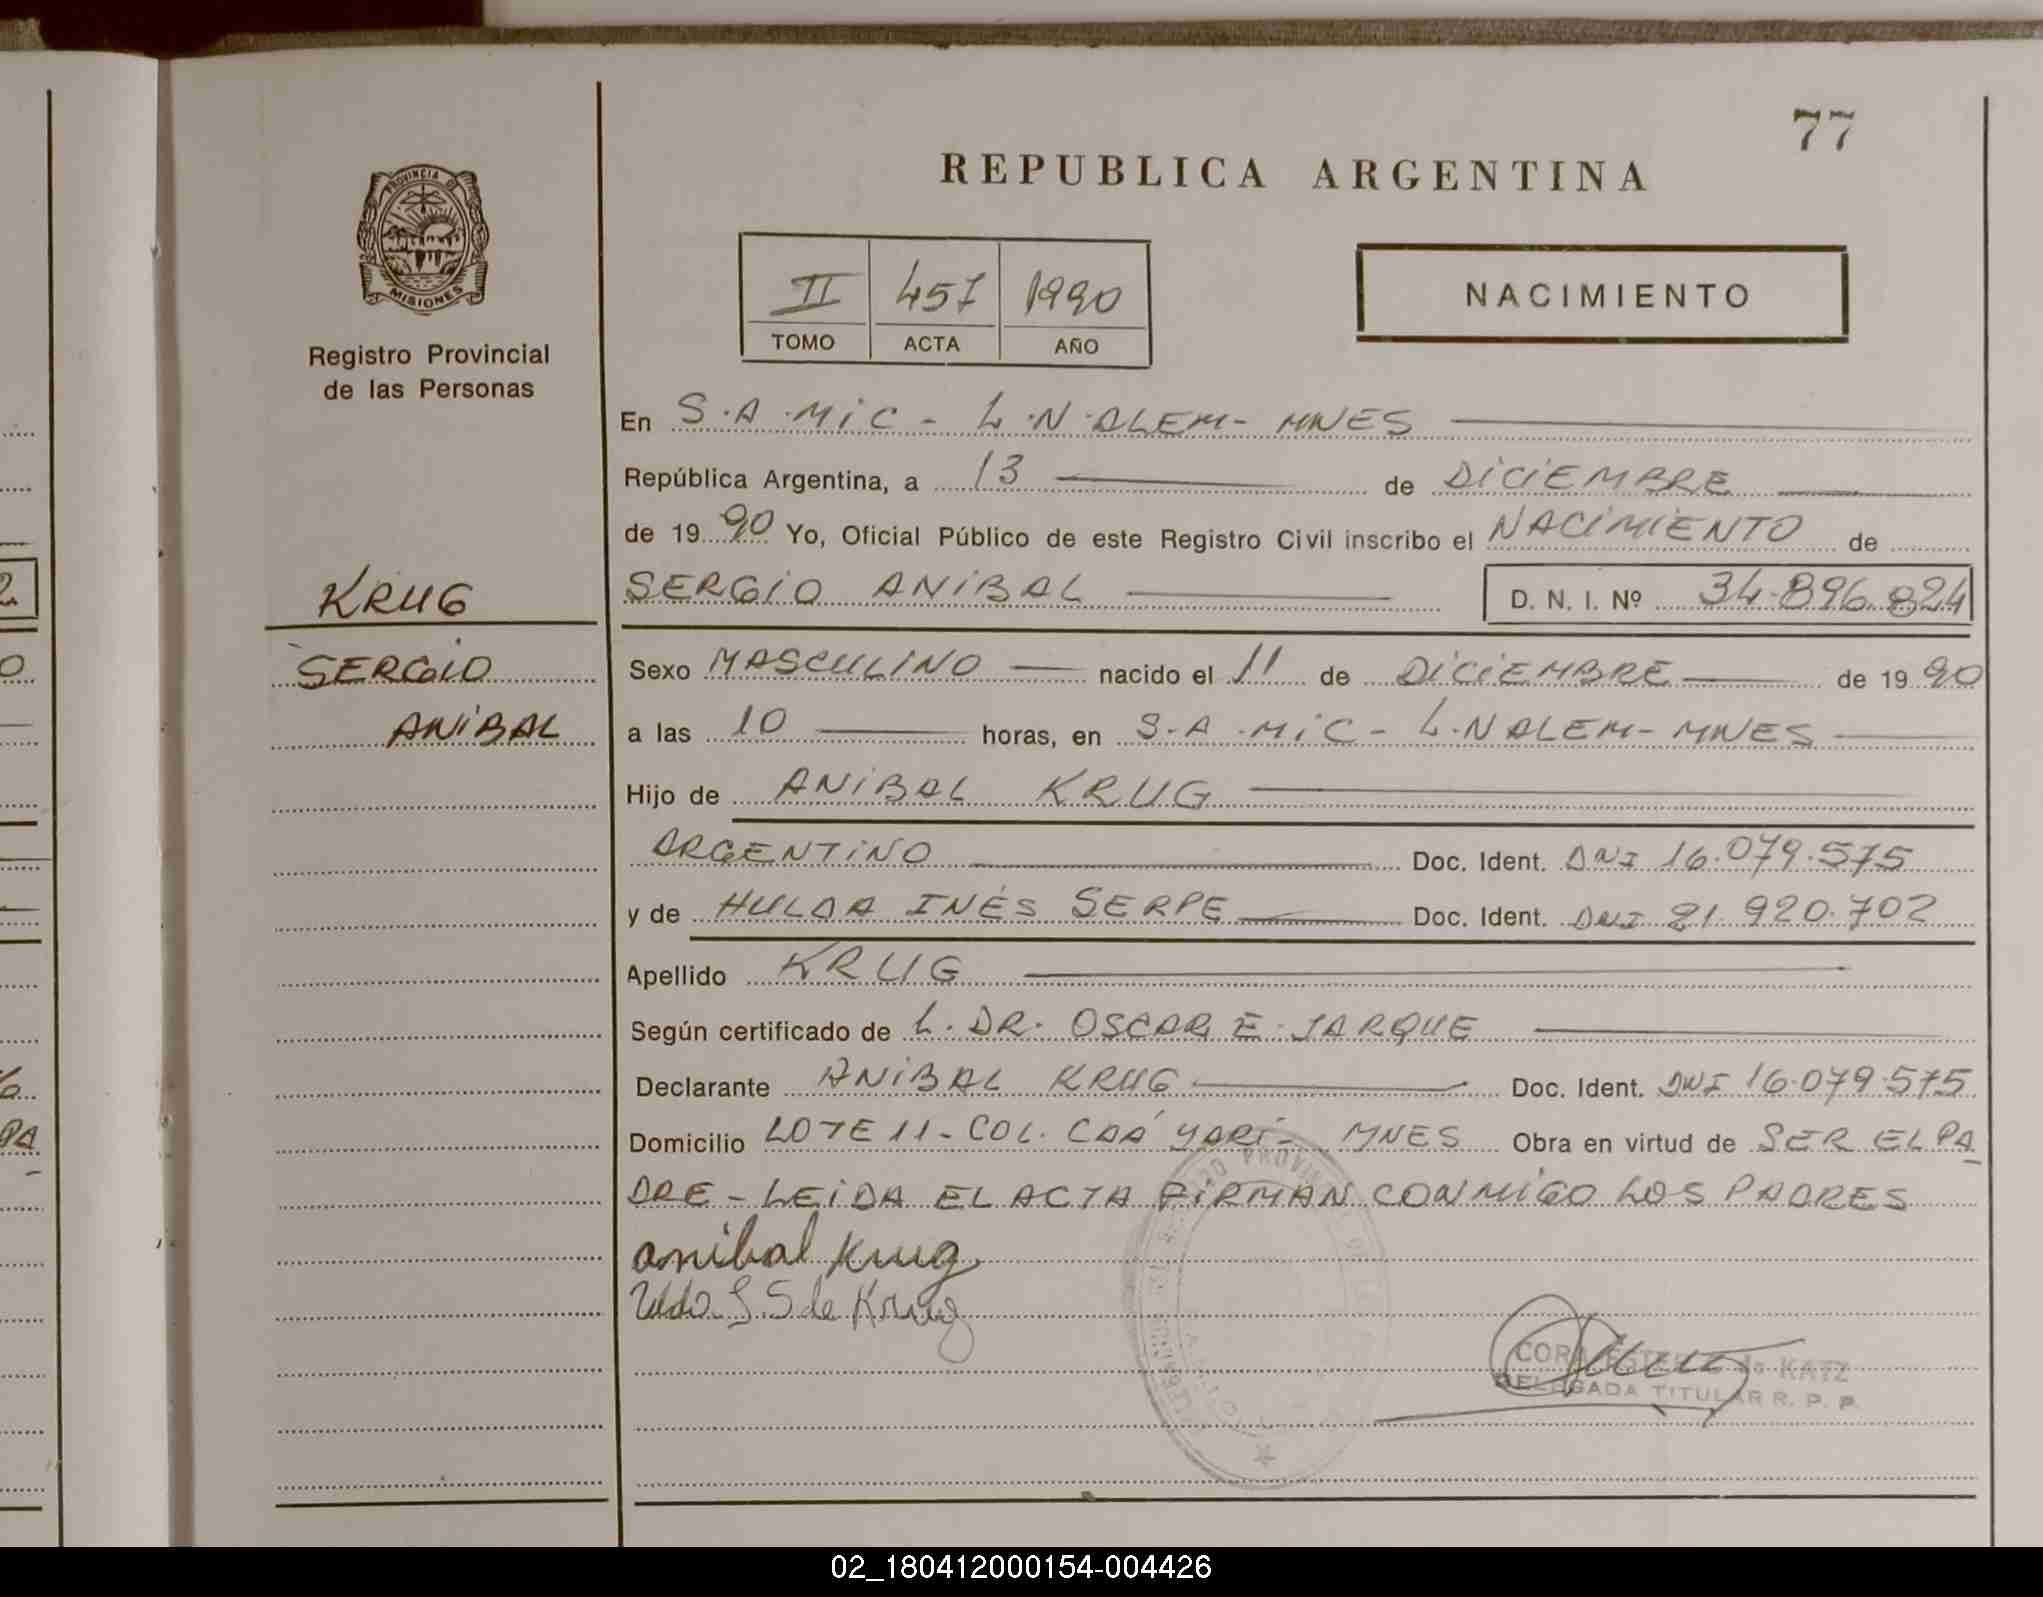 77
REPUBLICA ARGENTINA
PROVINCIA DE
MISIONES
Registro Provincial
de las Personas
II 457 1990
TOMO ACTA AÑO
NACIMIENTO
En S.A.MiC - L.N.ALEM - MNES
República Argentina, a 13 de DiCiEMBRE
de 19 90 Yo, Oficial Público de este Registro Civil inscribo el NACiMiENTO de
KRUG
SERGiO ANiBAL D. N. I. Nº 34.896.824
SERGIO
ANiBAL
Sexo MASCULINO nacido el 11 de DiCiEMBRE de 19 90
a las 10 horas, en S.A.MiC - L.N ALEM - MNES
Hijo de ANiBAL KRUG
ARGENTiNO Doc. Ident. DNI 16.079.575
y de HULDA INÉS SERPE Doc. Ident. DNI 21.920.702
Apellido KRUG
Según certificado de L. DR. OSCAR E. JARQUE
Declarante ANiBAL KRUG Doc. Ident. DNI 16.079.575
Domicilio LOTE 11 - COL. CAÁ YARÍ - MNES Obra en virtud de SER EL PA
DRE - LEiDA EL ACTA FiRMAN CONMiGO LOS PADRES
anibal Krug
S. de Krug
CORA ESTER de KATZ
DELEGADA TITULAR R. P. P.
02_180412000154-004426